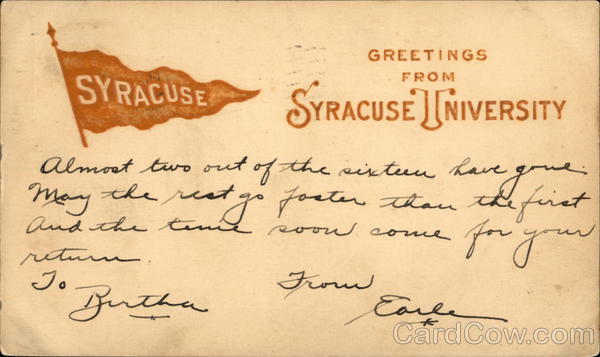 SYRACUSE
GREETINGS
FROM
SYRACUSE UNIVERSITY
Almost two out of the sixteen have gone.
May the rest go faster than the first
And the time soon come for your
return.
To From
Bertha Earle
CardCow.com